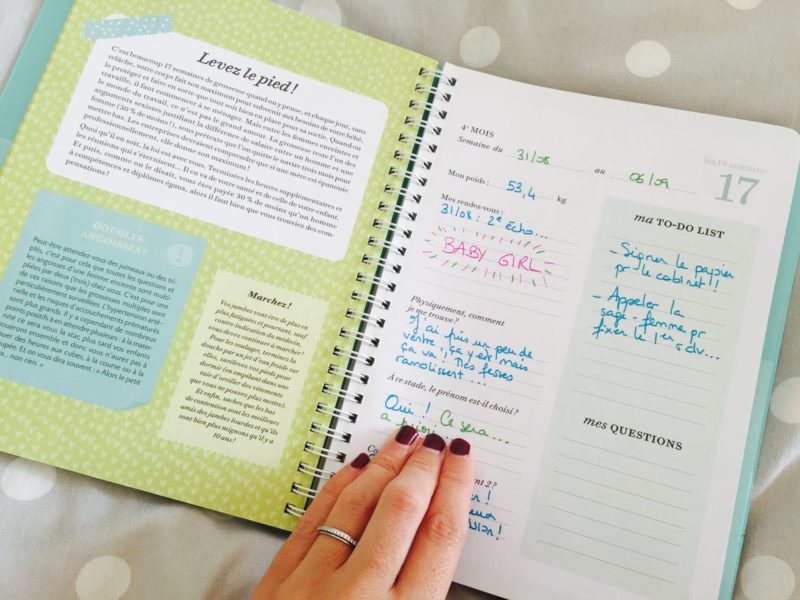 Levez le pied !
C'est beaucoup 17 semaines de grossesse quand on y pense, et chaque jour, sans
relâche, votre corps fait son maximum pour subvenir aux besoins de votre bébé,
le protéger et faire en sorte que tout soit bien en place pour sa sortie. Quand on
travaille, il faut commencer à se ménager. Mais entre les femmes enceintes et
le monde du travail, ce n'est pas le grand amour. La grossesse reste l'un des
arguments sexistes justifiant la différence de salaire entre un homme et une
femme (30 % de moins !), sous prétexte que l'on quitte le navire trois mois pour
mettre bas. Les entreprises devraient comprendre que si une mère est épanouie
professionnellement, elle donne son maximum !
Quoi qu'il en soit, la loi est avec vous. Terminées les heures supplémentaires et
les réunions qui s'éternisent... Il en va de votre santé et de celle de votre enfant.
Et puis, comme on le disait, vous êtes payée 30 % de moins qu'un homme
à compétences et diplômes égaux, alors il faut bien que vous trouviez des com-
pensations !
DOUBLES
ANGOISSES !
Peut-être attendez-vous des jumeaux ou des tri-
plés, c'est pour cela que toutes les questions et
les angoisses d'une femme enceinte sont multi-
pliées par deux (trois) chez vous. C'est pour une
de ces raisons que les grossesses multiples sont
particulièrement surveillées. L'hypertension arté-
rielle et les risques d'accouchements prématurés
sont plus grands. Il y a cependant de nombreux
points positifs à en attendre plusieurs : à la mater-
nité ce sera vous la star, plus tard vos enfants
joueront ensemble et donc vous n'aurez pas à
jouer des heures aux cubes, à la course ou à la
poupée. Et on vous dira souvent : « Alors le petit
rien. »
Marchez !
Vos jambes vont être de plus
en plus fatiguées et pourtant, sauf
contre-indication du médecin,
vous devez continuer à marcher !
Pour les soulager, terminez la
douche par un jet d'eau froide sur
elles, surélevez vos pieds pour
dormir (en empilant dans une
taie d'oreiller des vêtements
que vous ne pouvez plus mettre).
Et enfin, sachez que les bas
de contention sont les meilleurs
amis des jambes lourdes et qu'ils
sont bien plus mignons qu'il y a
10 ans !
4e MOIS
Semaine du 31/08 au 06/09
SA19 semaine
17
Mon poids : 53,4 kg
Mes rendez-vous :
31/08 : 2e écho...
BABY GIRL
Physiquement, comment
je me trouve ?
J'ai pris un peu de
ventre, ça y est mais
ça va ! Mes fesses
ramolissent...
À ce stade, le prénom est-il choisi ?
Oui ! Ce sera...
a
ma TO-DO LIST
- Signer le papier
pr le cabinet !
- Appeler la
sage-femme pr
fixer le 1er rdv...
mes QUESTIONS